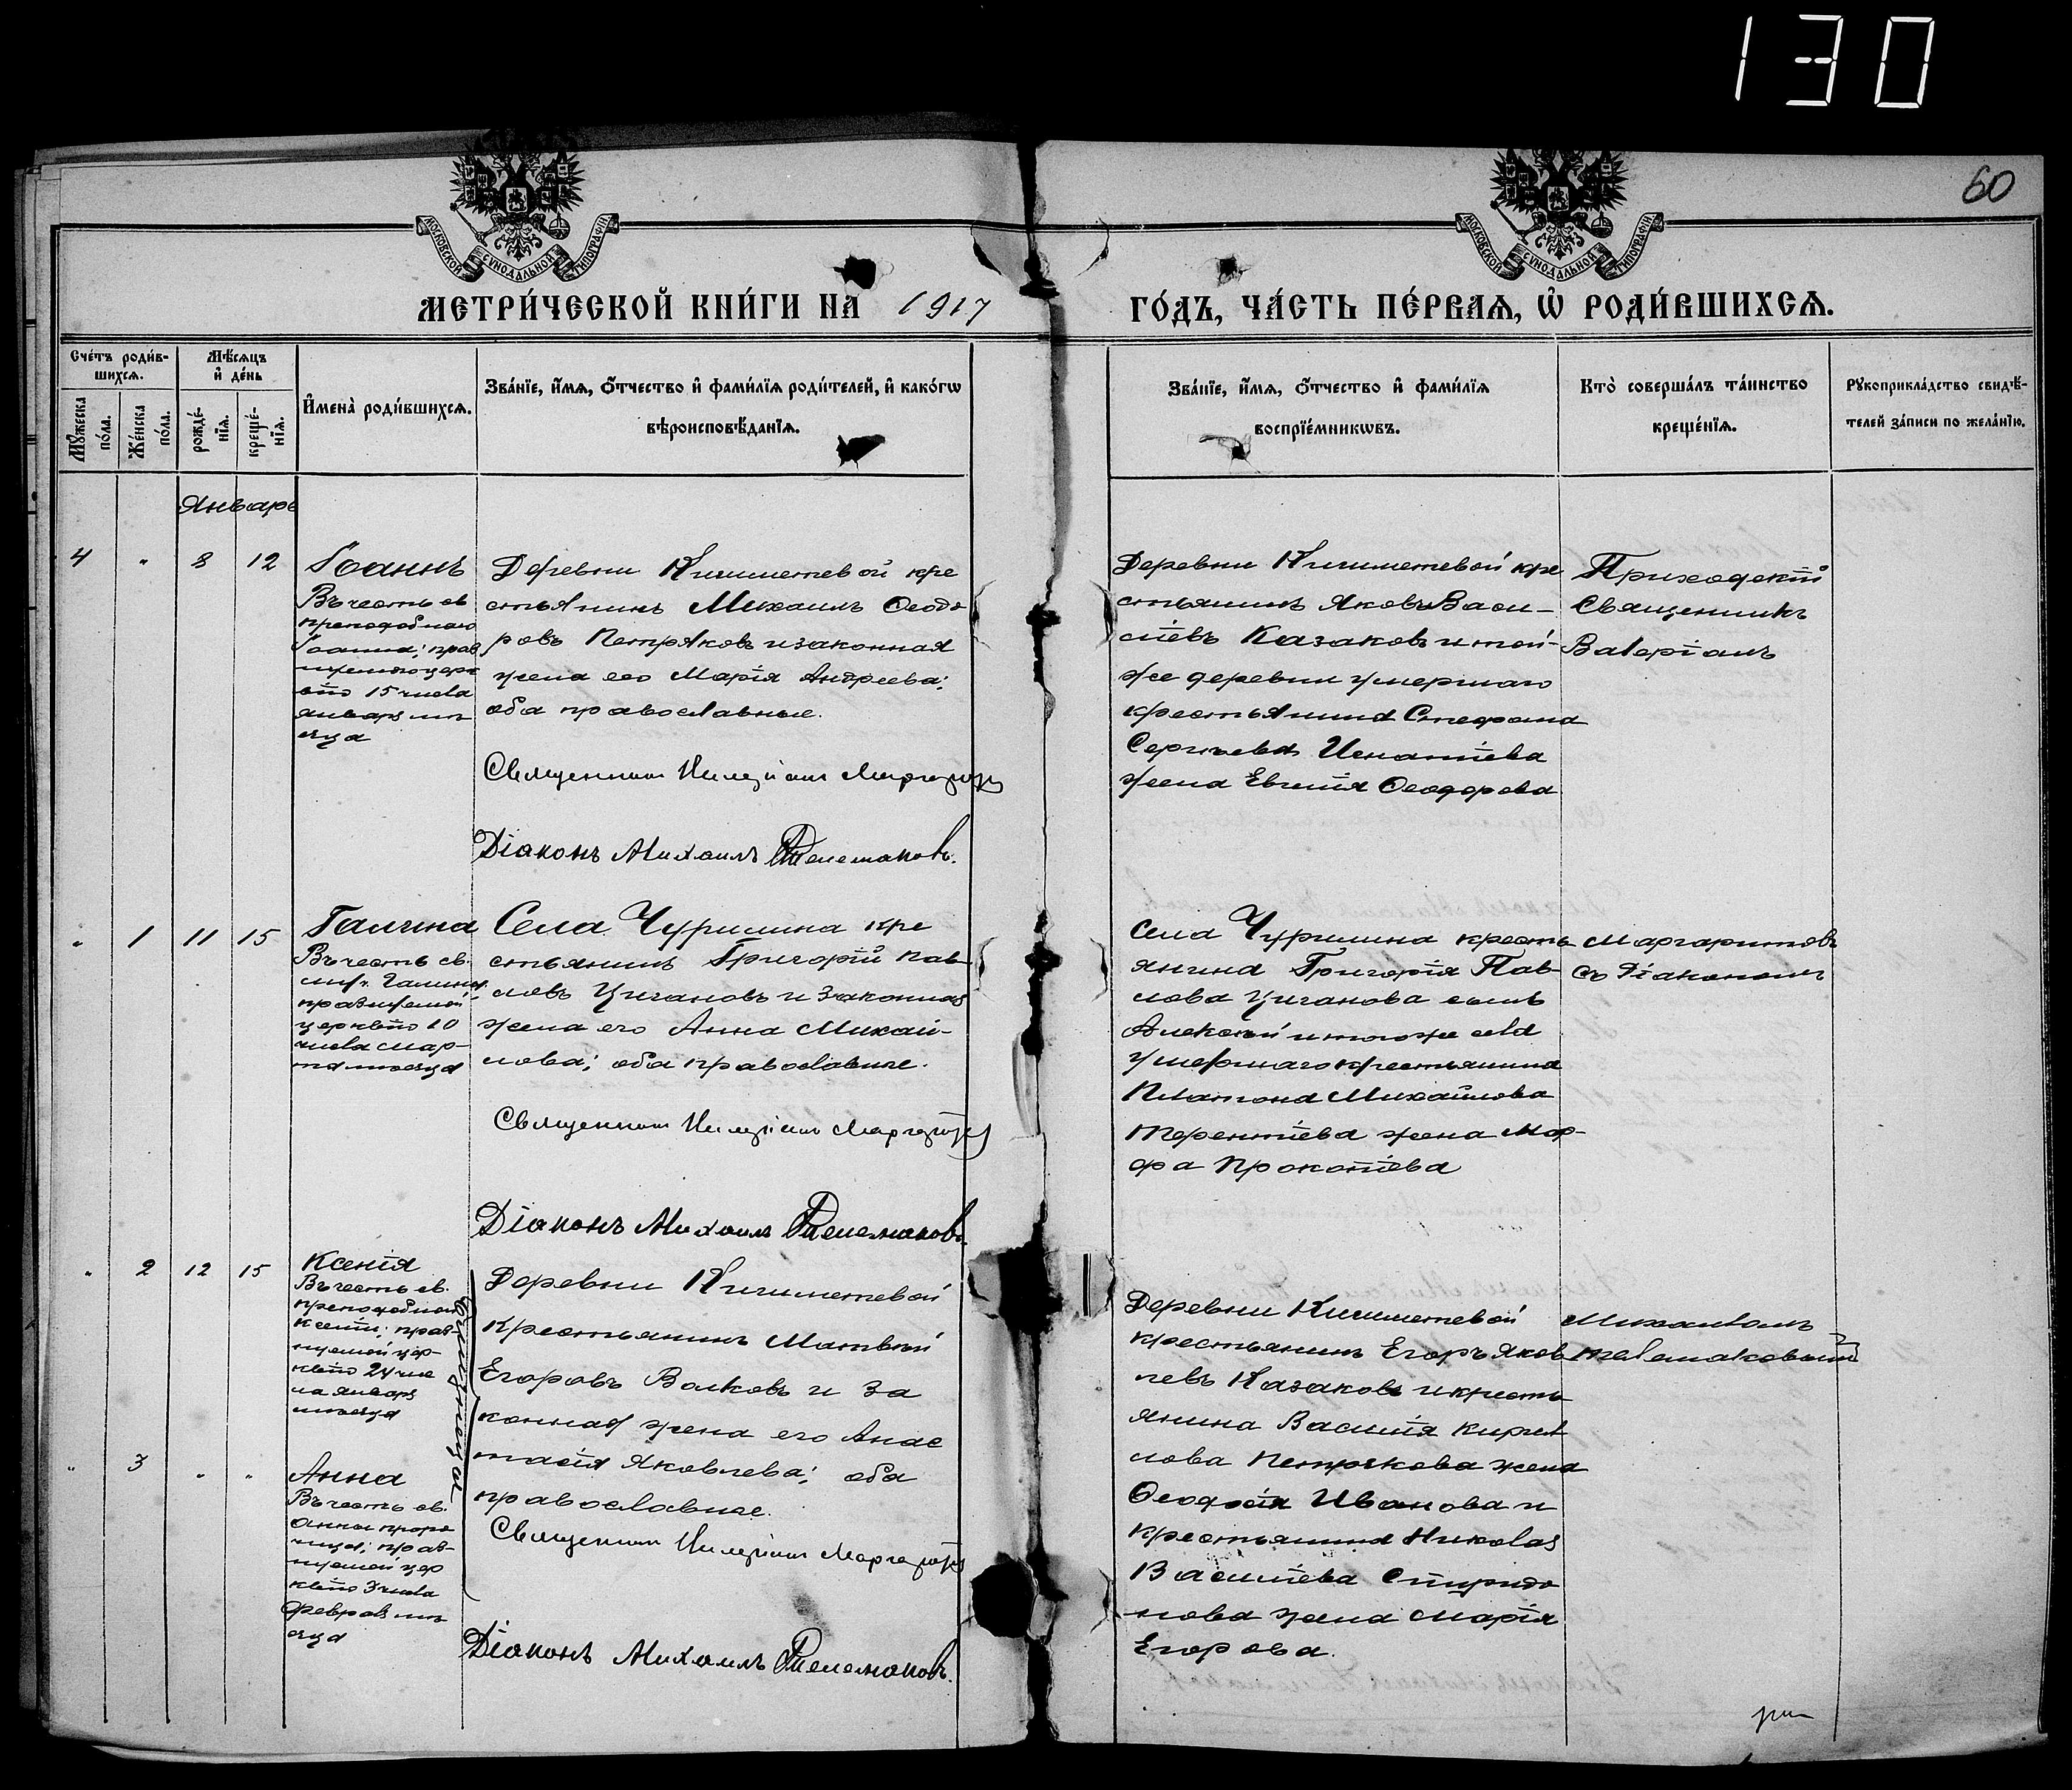 130
60
МОСКОВСКОЙ СУНОДАЛЬНОЙ ТИПОГРАФІИ
МОСКОВСКОЙ СУНОДАЛЬНОЙ ТИПОГРАФІИ
МЕТРИ́ЧЕСКОЙ КНИ́ГИ НА 1917
ГО́ДЪ, ЧА́СТЬ ПЕ́РВАѦ, Ѡ РОДИ́ВШИХСѦ.
Сче́тъ роди́в-
шихсѧ.
Мꙋжеска
по́ла.
Же́нска
по́ла.
Мѣ́сѧцъ
и҆ де́нь
рожде́-
нїѧ.
креще́-
нїѧ.
И҆мена̀ роди́вшихсѧ.
Зва́нїе, и҆́мѧ, ѻ҆́тчество и҆ фами́лїѧ роди́телей, и҆ како́гѡ
вѣроисповѣ́данїѧ.
Зва́нїе, и҆́мѧ, ѻ҆́тчество и҆ фами́лїѧ
воспрїе́мникѡвъ.
Кто̀ соверша́лъ та́инство
креще́нїѧ.
Рꙋкоприкла́дство свидѣ́-
телей за́писи по жела́нїю.
Январь
4 " 8 12
Іоаннъ
Въ честь св
преподобнаго
Іоанна; праз
нуемаго церк
вію 15 числа
января мѣ
сяца
Деревни Кичиметевой кре
стьянинъ Михаилъ Ѳеодо
ровъ Петряковъ и законная
жена его Марія Андреева;
оба православные.
Священник Маргарит
Діаконъ Михаилъ Телемаковъ.
Деревни Кичиметевой кре
стьянинъ Яковъ Васи-
ліевъ Казаковъ и той-
же деревни умершаго
крестьянина Стефана
Сергѣева Игнатіева
жена Евгенія Ѳеодорова
Приходскій
Священникъ
Валеріанъ
" 1 11 15
Галина
Въ честь св.
муч. Галины
празнуемой
церквію 10
числа мар-
та мѣсяца
Села Чурилина кре
стьянинъ Григорій Пав-
ловъ Цигановъ и законная
жена его Анна Михай-
лова; оба православные.
Священник Маргарит
Діаконъ Михаилъ Телемаковъ.
Села Чурилина кресть
янина Григорія Пав-
лова Циганова сынъ
Алексѣй и тогоже села
умершаго крестьянина
Платона Михайлова
Терентіева жена Мар-
фа Прокопіева
Маргаритовъ
съ Діакономъ
" 2 12 15
Ксенія
Въ честь св.
преподобной
Ксеніи; праз-
нуемой цер-
квію 24 чис
ла января
мѣсяца
близнецы
Деревни Кичиметевой
крестьянинъ Матвѣй
Егоровъ Волковъ и за
конная жена его Анас
тасія Яковлева; оба
православные.
Священник Маргарит
Діаконъ Михаилъ Телемаковъ.
" 3 " "
Анна
Въ честь св.
Анны проро
чицы; праз-
нуемой цер
квію 3 числа
Февраля мѣ
сяца
Деревни Кичиметевой
крестьянинъ Егоръ Яков
левъ Казаковъ и кресть
янина Василія Кирил
лова Петрякова жена
Ѳеодосія Иванова и
крестьянина Николая
Василіева Спиридо
нова жена Марія
Егорова.
Михаиломъ
Телемаковымъ